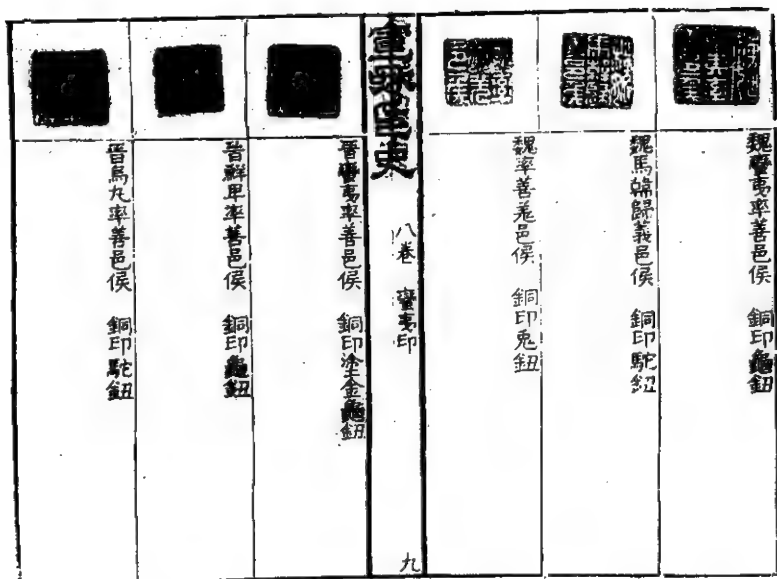 魏蠻夷率善邑侯　銅印龜鈕
魏馬韓歸義邑侯　銅印駝鈕
魏率善羌邑侯　銅印兔鈕
宣龢印史　八卷　蠻夷印　九
晉蠻夷率善邑侯　銅印塗金龜鈕
晉鮮卑率善邑侯　銅印龜鈕
晉烏丸率善邑侯　銅印駝鈕